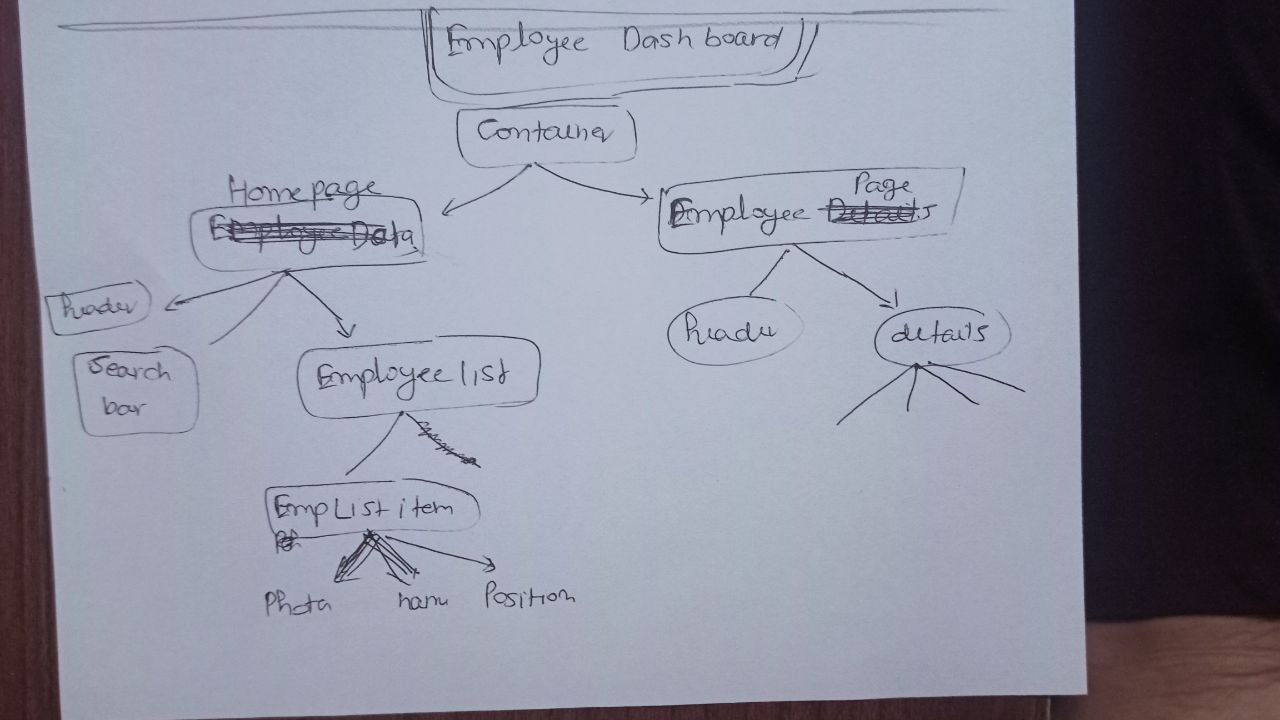 Employee Dashboard
Container
Homepage
Employee Data
Page
Employee Details
header
Search
bar
Employee list
header
details
Emp List item
Photo name Position